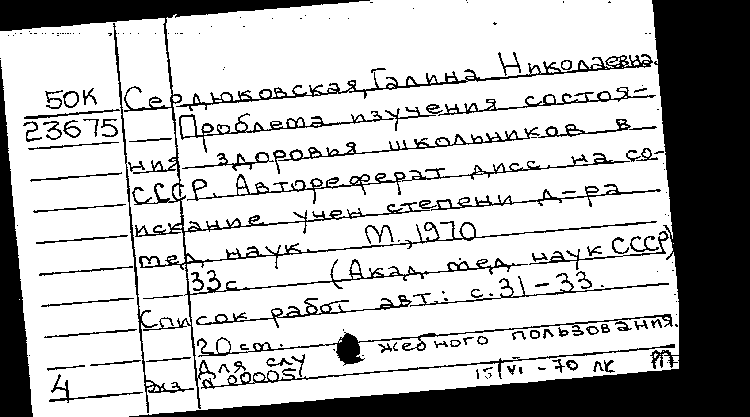 50К Сердюковская, Галина Николаевна.
23675 Проблема изучения состоя=
ния здоровья школьников в
СССР. Автореферат дисс. на со-
искание учен степени д=ра
мед. наук. М., 1970
33с. (Акад. мед. наук СССР)
Список работ авт.: с. 31-33.
20 см.
Для слу жебного пользования.
4 экз № 00005
15/VI - 70 ЛК М